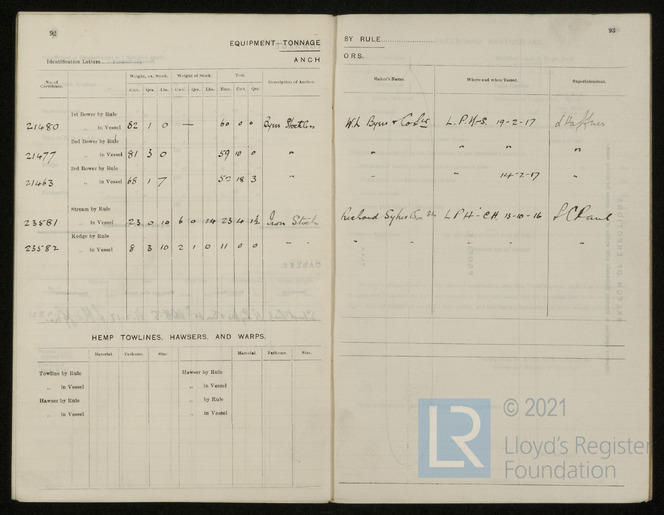 92
EQUIPMENT—TONNAGE
Identification Letters
ANCH
No. of Certificate. Weight, ex. Stock. Weight of Stock. Test. Description of Anchor.
Cwt. Qrs. Lbs. Cwt. Qrs. Lbs. Tons. Cwt. Qrs.
1st Bower by Rule
21480 „ in Vessel 82 1 0 — 60 0 0 Byers Stockless
2nd Bower by Rule
21477 „ in Vessel 81 3 0 59 10 0
3rd Bower by Rule
21463 „ in Vessel 68 1 7 52 18 3
Stream by Rule
23581 „ in Vessel 23 0 10 6 0 14 23 14 1½ Iron Stock
Kedge by Rule
23582 „ in Vessel 8 3 10 2 1 0 11 0 0 " "
HEMP TOWLINES, HAWSERS, AND WARPS.
Material. Fathoms. Size. Material. Fathoms. Size.
Towline by Rule Hawser by Rule
„ in Vessel „ in Vessel
Hawser by Rule „ by Rule
„ in Vessel „ in Vessel
93
BY RULE
ORS.
Maker's Name. Where and when Tested. Superintendent.
W.L. Byers & Co L.P.H-S. 19-2-17
" " " "
" " 14-2-17 "
Richard Sykes L P H - C H. 13-10-16
" " " "
LR © 2021
Lloyd's Register
Foundation